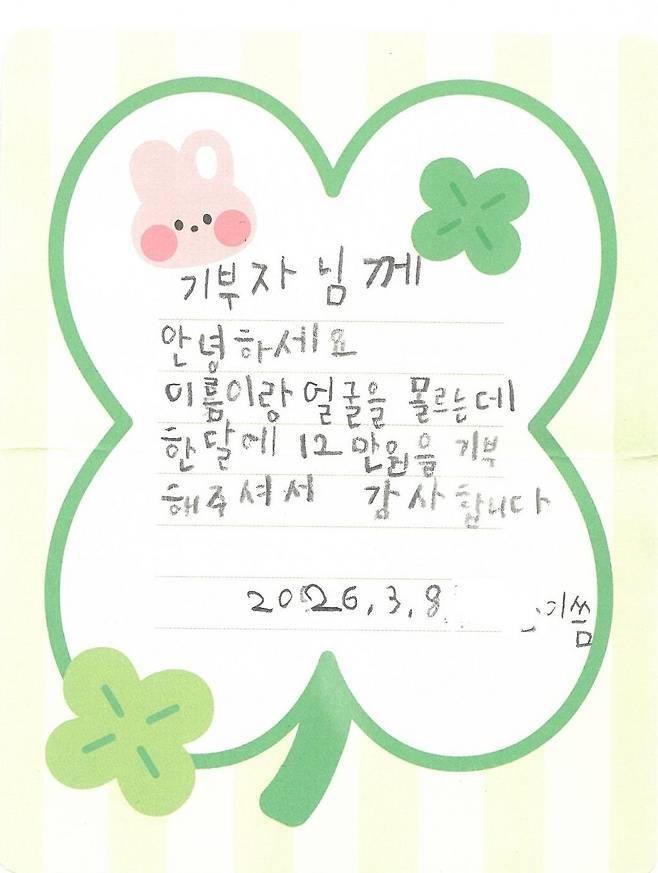 기부자님께
안녕하세요
이름이랑 얼굴을 몰르는데
한달에 12만원을 기부
해주셔서 감사합니다
2026.3.8
이씀